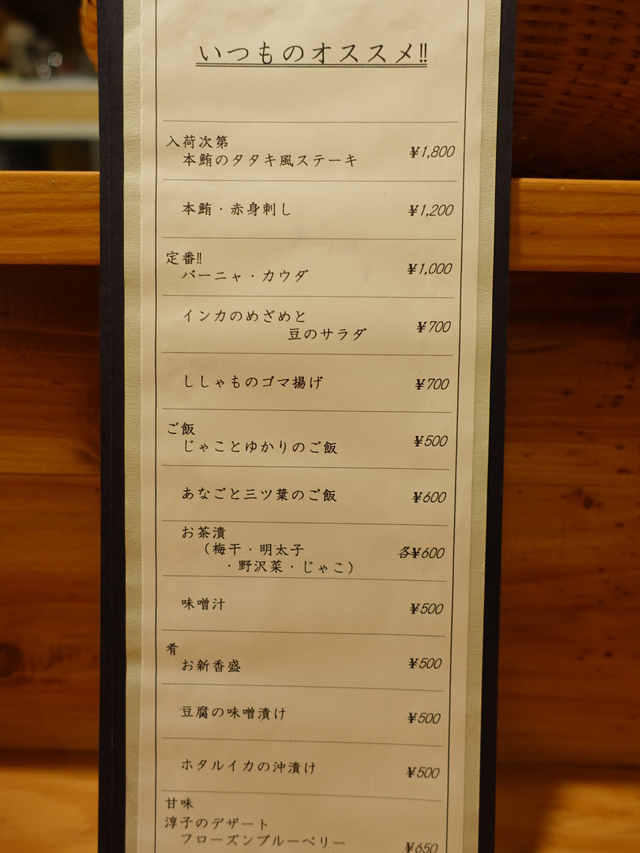 いつものオススメ!!
入荷次第
本鮪のタタキ風ステーキ ¥1,800
本鮪・赤身刺し ¥1,200
定番!!
バーニャ・カウダ ¥1,000
インカのめざめと
豆のサラダ ¥700
ししゃものゴマ揚げ ¥700
ご飯
じゃことゆかりのご飯 ¥500
あなごと三ツ葉のご飯 ¥600
お茶漬
(梅干・明太子 各¥600
・野沢菜・じゃこ)
味噌汁 ¥500
肴
お新香盛 ¥500
豆腐の味噌漬け ¥500
ホタルイカの沖漬け ¥500
甘味
淳子のデザート
フローズンブルーベリー ¥650